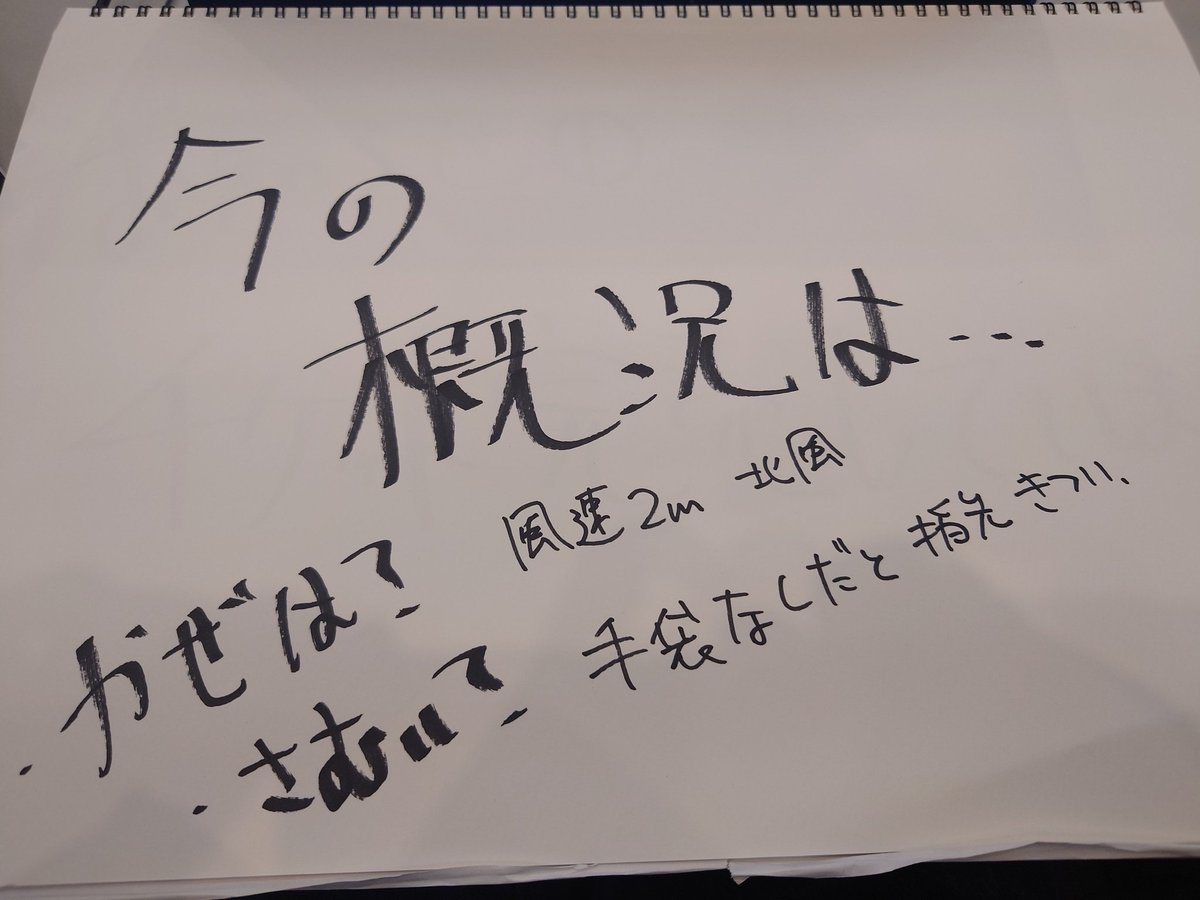 今の
概況は…
・かぜは？ 風速2m 北風
・さむい？ 手袋なしだと指先きつい、